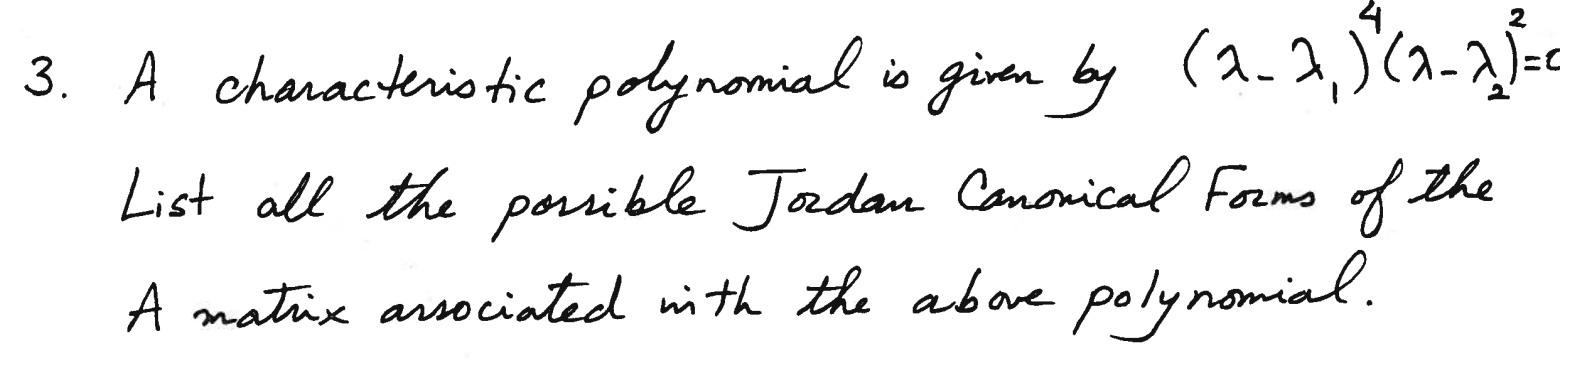 3. A characteristic polynomial is given by (λ-λ₁)⁴(λ-λ₂)²=
List all the possible Jordan Canonical Forms of the
A matrix associated with the above polynomial.